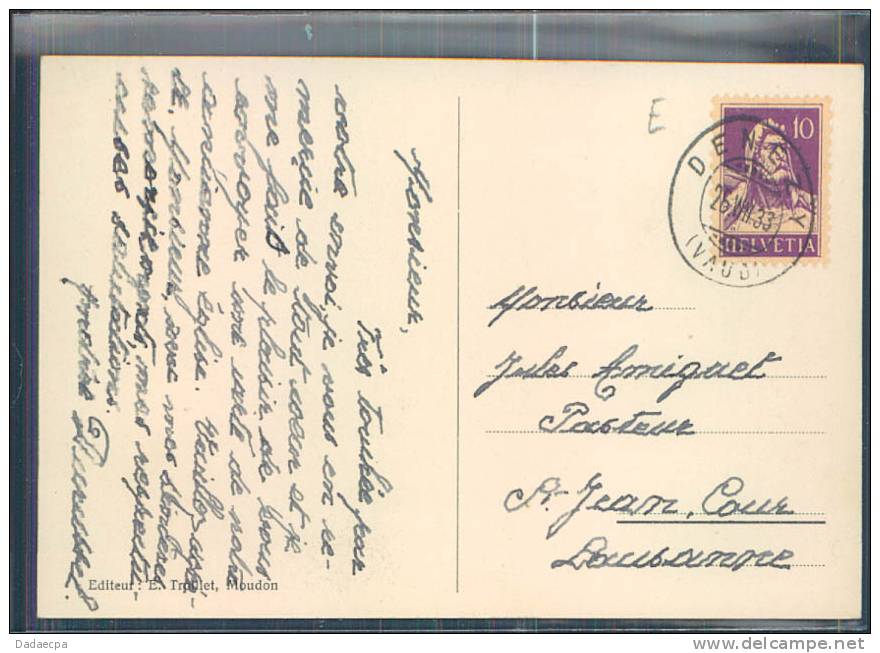 Monsieur,
Très touchée par
votre envoi, je vous en re-
mercie de tout cœur et je
me fais le plaisir de vous
envoyer une carte de notre
ancienne église. Veuillez agré-
er, Monsieur, avec mes
remerciements, mes respectu-
euses salutations.
E
10
DENEZY
26.VIII.33
(VAUD)
HELVETIA
Monsieur
Jules Amiguet
Pasteur
St-Jean, Cour
Lausanne
Editeur : E. Troillet, Moudon
Dadaecpa
www.delcampe.net